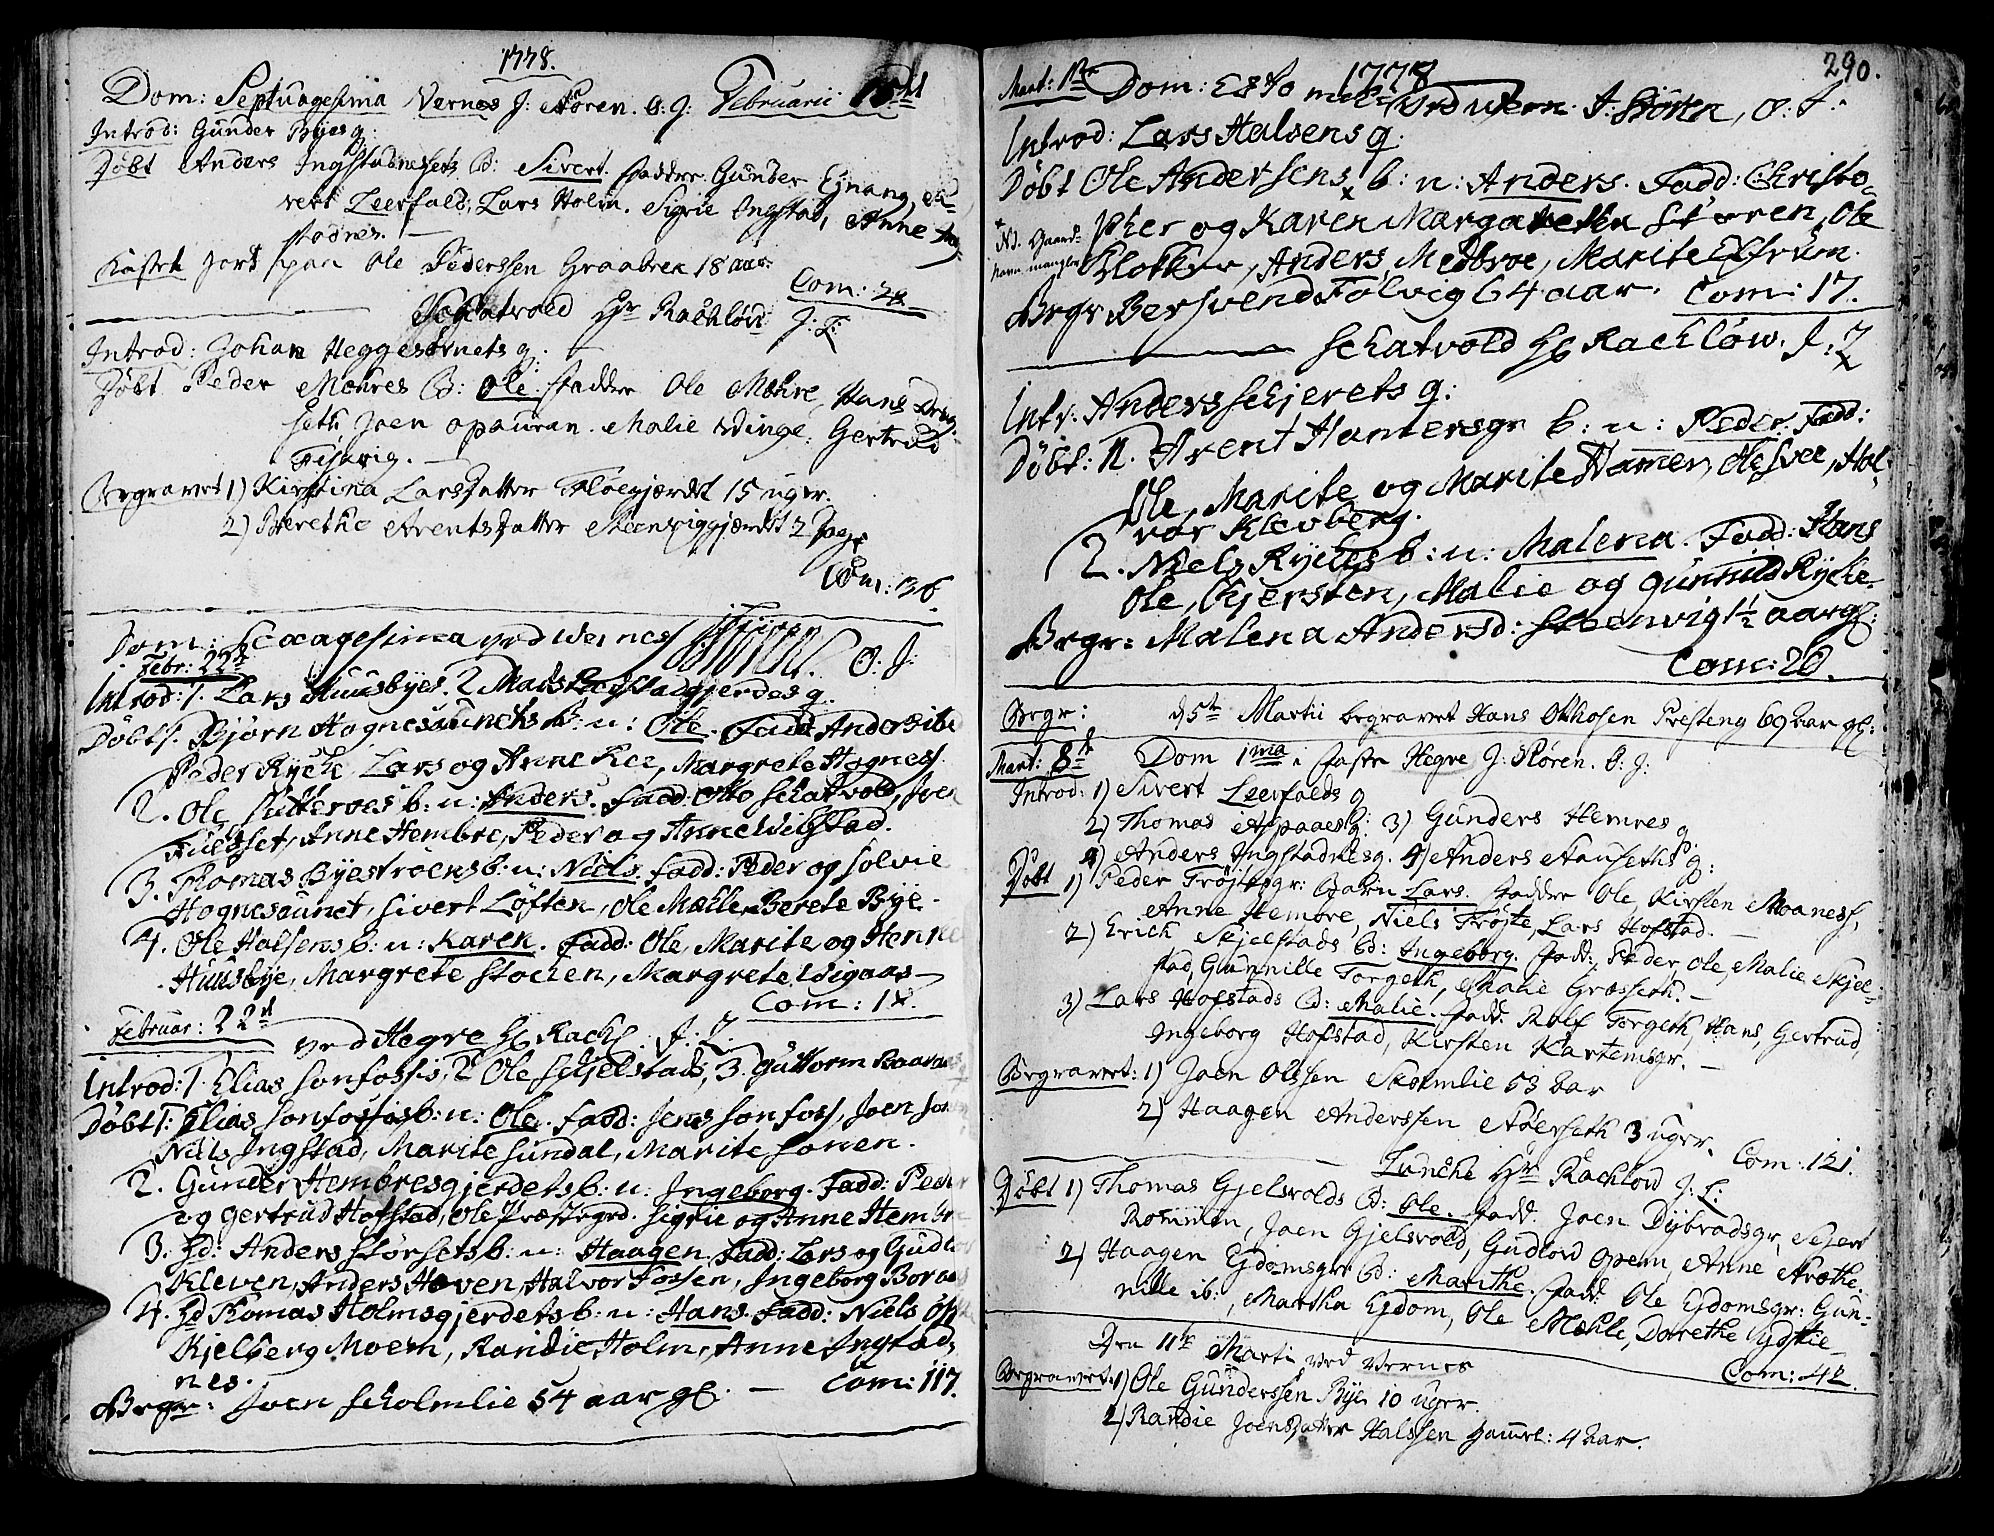 1778.
Dom: Septuagesima Vernes J: Støren. O. J: Februarii 15de
Introd: Gunder Byes q:
Døbt Anders Ingstadnesets B: Sivert. Fadder. Gunder Ejnang,
vert Leerfald, Lars Holm. Sigrie Ingstad, Anne Ing-
stadnes. —
Ole Pederssen Graabrek 18 aar.
Com: 28
Schatvold Hr Rachlöw J. L:
Introd: Johan Heggesornets q: —
Døbt Peder Mæhres B: Ole. Fadder Ole Mæhre, Hans Drug-
seth, Joen opauran. Malie Winge, Gertrud
Fisvig. —
Begravet 1) Kirstina Larsdatter Fløegjærdet 15 uger.
2) Berethe Arentsdatter Steenviggjærdet 2 Dage
Com: 36.
Dom: Sexagesima ved Wernes Støren O: J:
Febr: 22de
Introd: 1. Lars Huusbyes. 2 Mads gjerdes q.
Døbt 1. Bjørn Hognesaunets b: n: Ole. Fadd: Anders
Peder Rycke Lars og Anne Ree, Margrete Hognes.
2. Ole Sutterøes b: n: Anders. Fadd: Otto Schatvold, Iver
Fuldset, Anne Hembre, Peder og Anne Wibstad.
3. Thomas Byestrøens b: n: Niels. Fadd: Peder og Solvie
Hognesaunet, Sivert Løften, Ole Mælle, Berete Bye.
4. Ole Halsens b: n: Karen. Fadd: Ole, Marite og Henne
Huusbye, Margrete Stocen, Margrete Wigaas —
Com: 18.
Februar: 22de
ved Hegre H Rachl. J: L.
Introd: 1. Elias Sonfossis, 2 Ole Schjelstads, 3. Guttorm
Døbt 1: Elias Sonfossis b: n: Ole. Fadd: Jens Sonfoss, Joen
Niels Ingstad, Marite Sundal, Marite Sonen.
2. Gunder Hembresgjerdets b: n: Ingeborg. Fadd: Peder
og Gertrud Hofstad, Ole Præstegrd. Sigrie og Anne Hembre
3. Hd: Anders Størsets b: n: Haagen. Fadd: Lars og Gudlov
Kleven, Anders Hoven, Halvor Fossen, Ingeborg
4. Hd Thomas Holmsgjerdets b: n: Hans. Fadd: Niels
Kjelberg Moem, Randie Holm, Anne Ingstad,
nes.
Com: 117.
Begr: Joen Scholmlie 54 aar gl. —
290.
1778
Mart: 1ste Dom: Esto mihi ved Wern. J. Støren, O: J.
Introd: Lars Halsens q.
Døbt Ole Andersens x b: n: Anders. Fadd: Christo-
pher og Karen Margarethe Støren, Ole
x Nb. Gaards-
navn mangler
Klokker, Anders Medbroe, Marite Elfrum.
Begr Bersvend Folvig 64 aar. Com: 17.
Schatvold H Rachlöw. J: L
Intr: Anders Schjerets q:
Døbt: 1. Arent Hamersgr b: n: Peder. Fadd:
Ole, Marite og Marite Hamer, Ole Svee, Hal-
vor Klevberg.
2. Niels Ryckes b: n: Malena. Fadd: Hans
Ole, Kjersten, Malie og Gunnild Rycke.
Begr: Malena Andersd: Steenvig 1½ aar gl:
Com: 20.
Begr: d 5te Martii begravet Hans Otthosen Presteng 69 aar gl:
Mart: 8de Dom 1ma i Faste Hegre J: Støren. O: J:
Introd: 1) Sivert Leerfalds q
2) Thomas Aspaaes q: 3) Gunders Hemres q
4) Anders Ingstadnes q. 5) Anders Aunseths q:
Døbt 1) Peder Trøjtesgr: Barn Lars. Fadder Ole, Kirsten Moaness,
Anne Hembre, Niels Trøjte, Lars Hofstad. —
2) Erich Skjelstads B: Ingeborg. Fadd: Peder, Ole, Malie Skjel-
stad, Gunnille Torgeth, Malie Græsseth. —
3) Lars Hofstads B: Malie. Fadd. Rolf Torgeth, Hans, Gertrud,
Ingeborg Hofstad, Kirsten Kartemsgr. —
Begravet: 1) Joen Olssen Skolmlie 53 aar
2) Haagen Anderssen Støerseth 3 uger.
Com: 121.
Lancke Hr Rachlöw J: L:
Døbt 1) Thomas Gjelsvolds B: Ole. Fadd: Joen Dybvadsgr, Sivert
Rommen, Joen Gjelsvold, Gudlov Opem, Anne Arothe.
2) Haagen Ejdomsgr B: Marithe. Fadd: Ole Ejdomsgr: Gun-
nille ib:, Martha Ejdom, Ole Mæhle, Dorethe Lydstie —
Com: 42.
Den 11te Marti ved Vernes
Begravet 1) Ole Gunderssen Bye 10 uger.
2) Randie Joensdatter Halssen gamel: 4 aar.